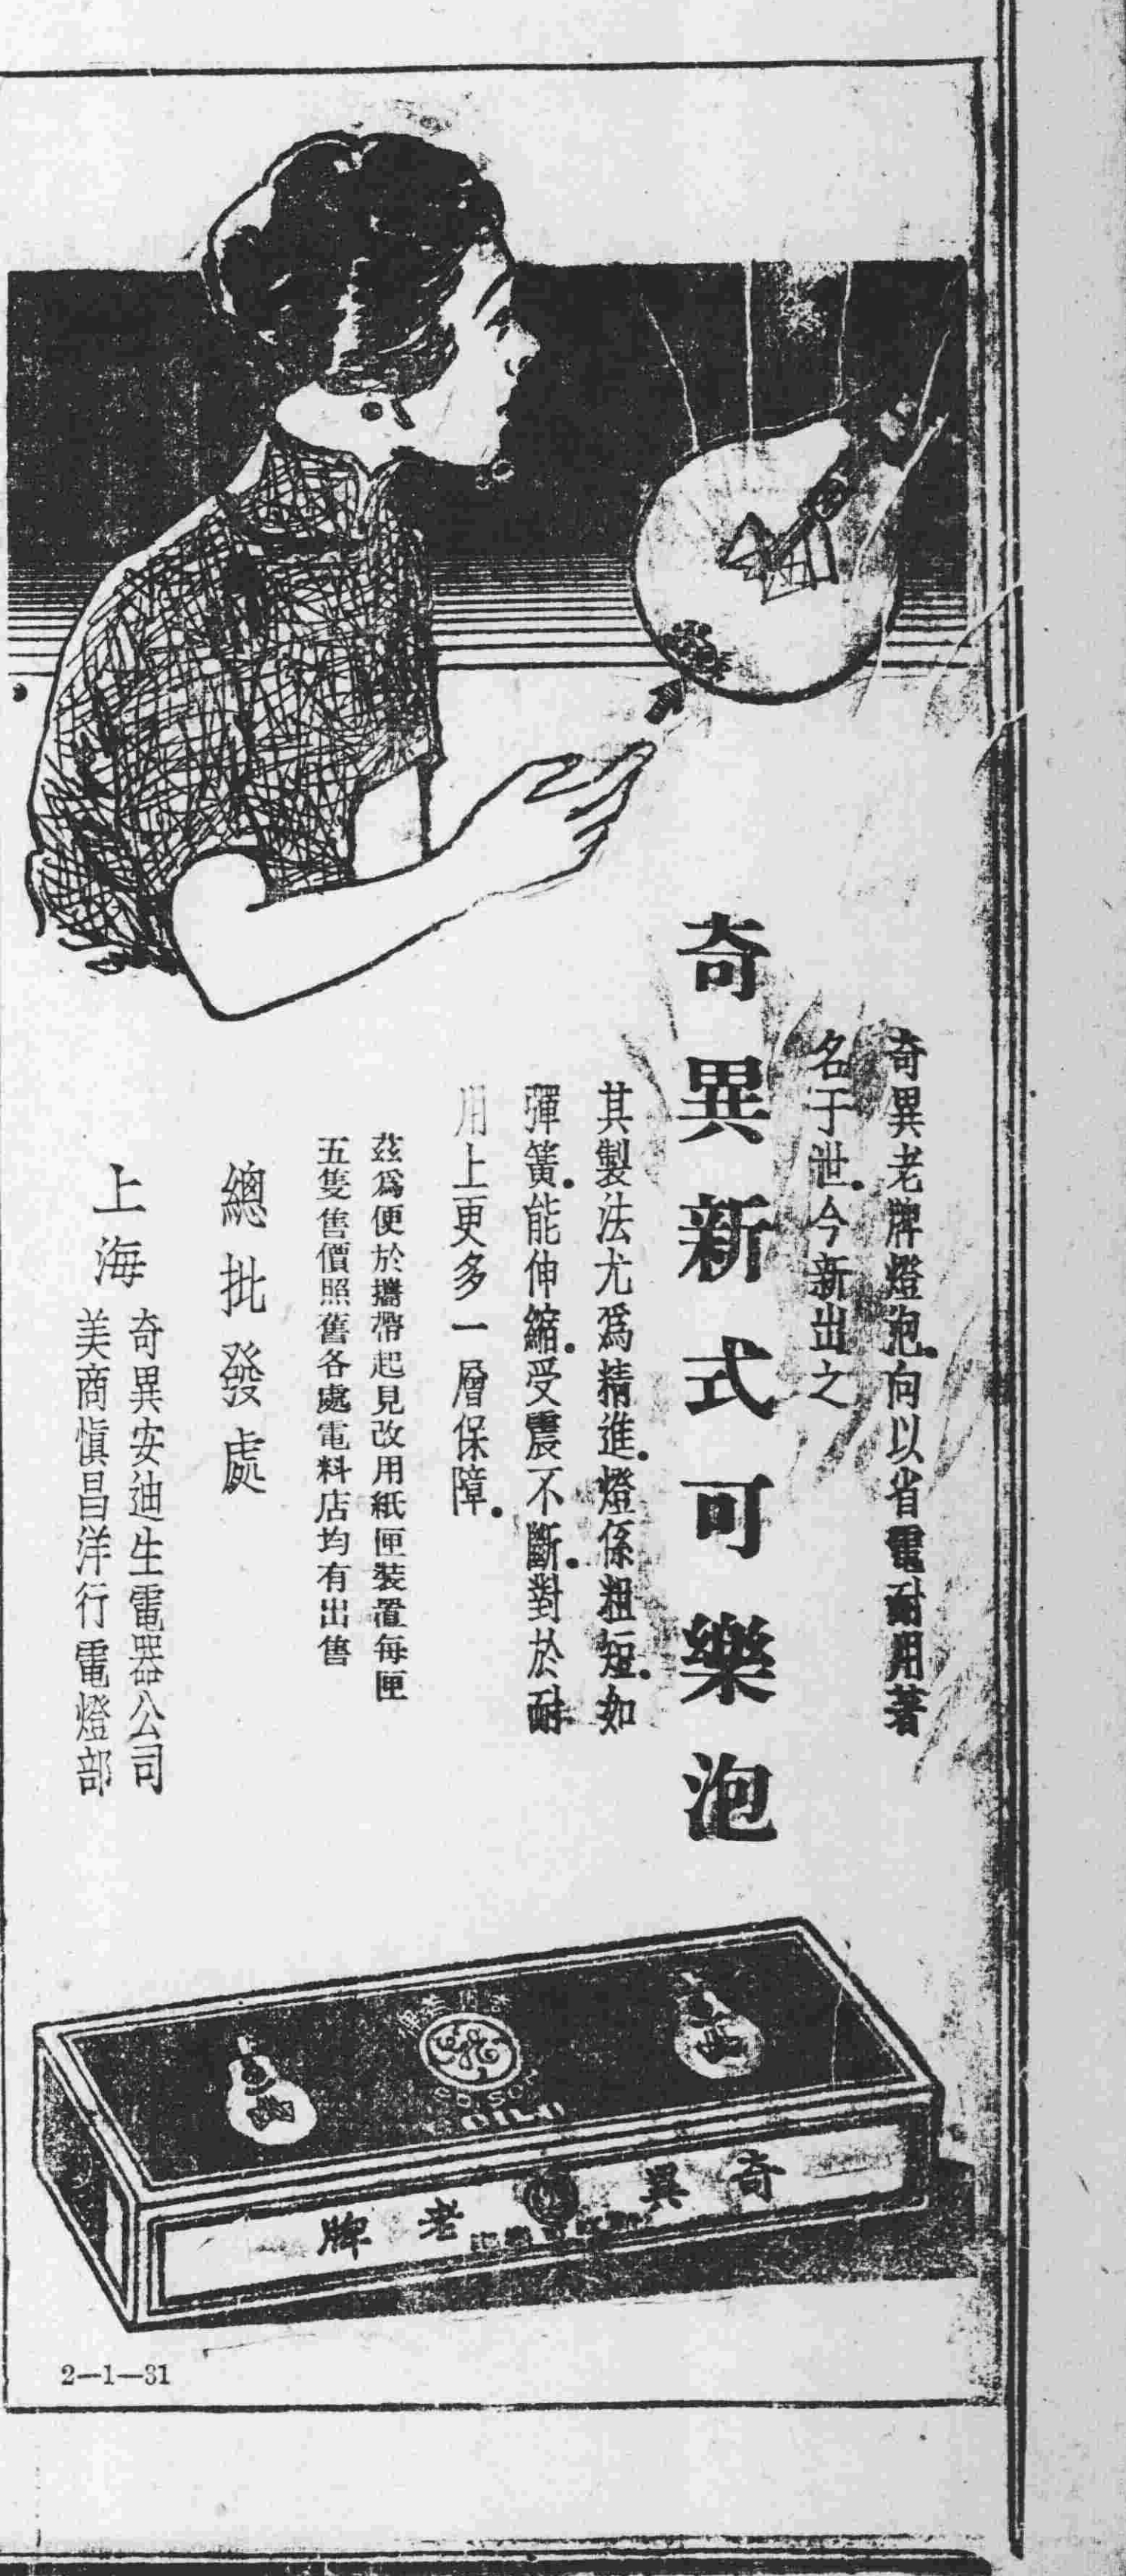 奇異老牌燈泡.向以省電耐用著
名于世.今新出之
奇異新式可樂泡
其製法尤爲精進.燈係粗短.如
彈簧.能伸縮.受震不斷.對於耐
用上更多一層保障.
茲爲便於攜帶起見改用紙匣裝置每匣
五隻售價照舊各處電料店均有出售
總批發處
上海
奇異安迪生電器公司
美商愼昌洋行電燈部
奇異
老牌
2—1—31